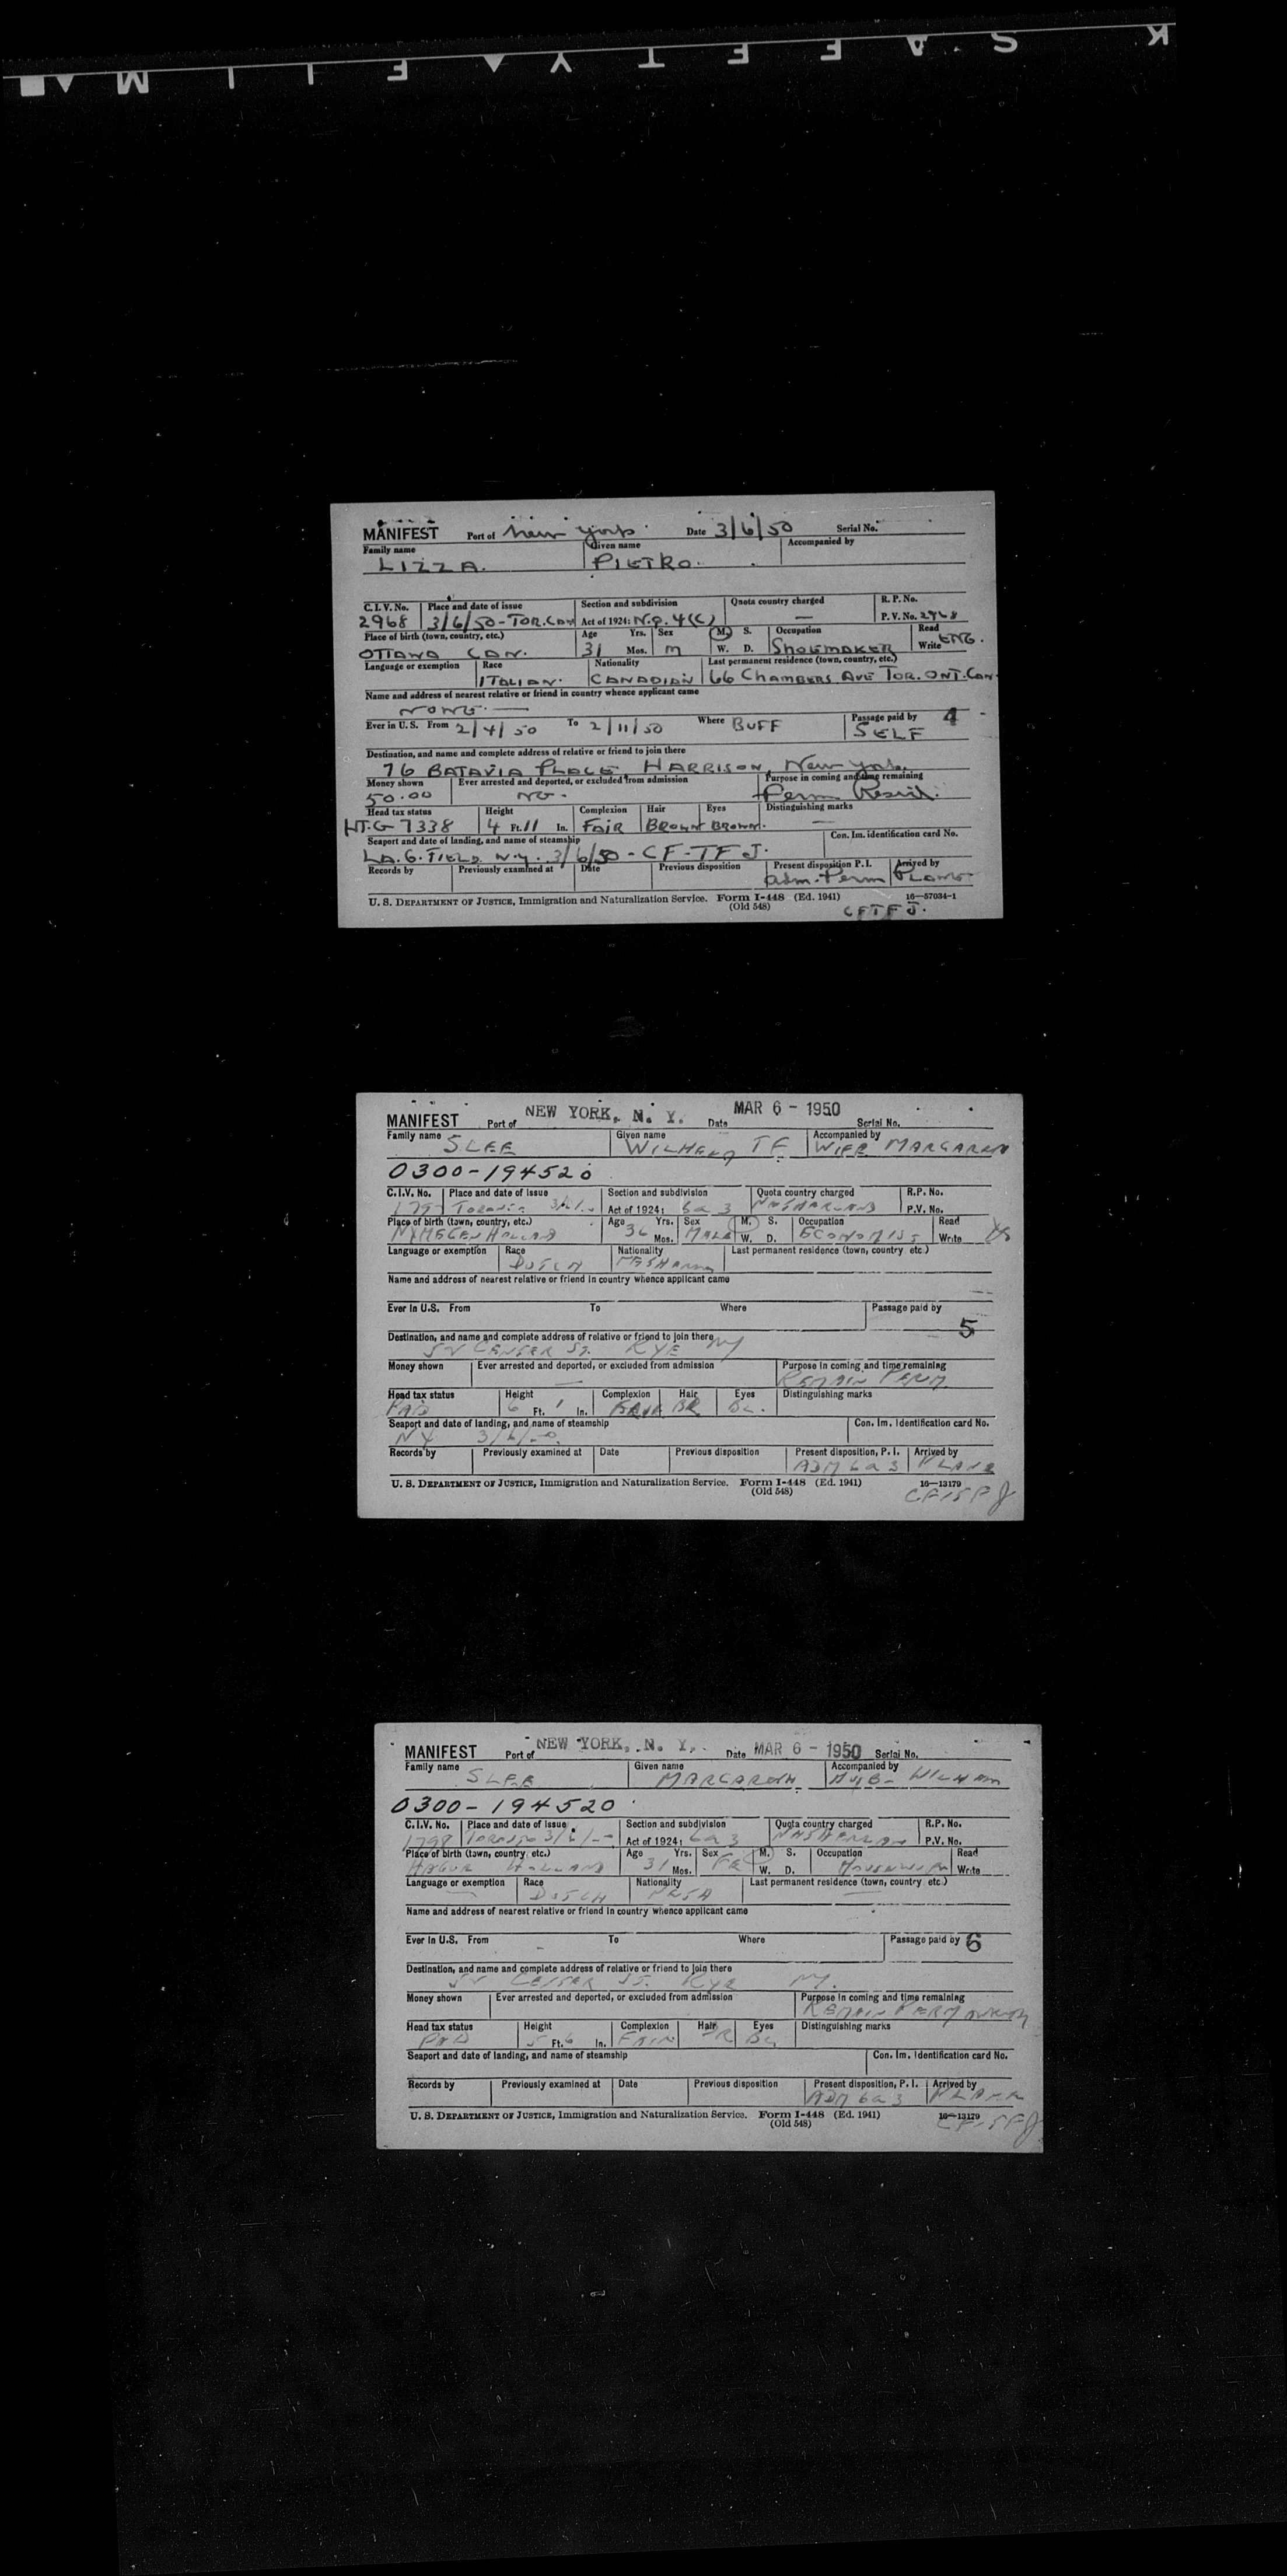 K S A F E T Y ▲ F I L M ▲ ■
MANIFEST Port of New York Date 3/6/50 Serial No.
Family name Given name Accompanied by
LIZZA. PIETRO.
C.I.V. No. Place and date of issue Section and subdivision Quota country charged R.P. No.
2968 3/6/50-TOR.CAN Act of 1924: N.Q. 4(C) — P.V. No. 2968
Place of birth (town, country, etc.) Age Yrs. Sex M. S. Occupation Read
OTTAWA CAN. 31 Mos. M W. D. SHOEMAKER Write ENG.
Language or exemption Race Nationality Last permanent residence (town, country, etc.)
ITALIAN. CANADIAN 66 CHAMBERS AVE TOR. ONT. CAN
Name and address of nearest relative or friend in country whence applicant came
NONE —
Ever in U.S. From 2/4/50 To 2/11/50 Where BUFF Passage paid by 4
SELF
Destination, and name and complete address of relative or friend to join there
76 BATAVIA PLACE HARRISON, New York.
Money shown Ever arrested and deported, or excluded from admission Purpose in coming and time remaining
50.00 NO. Perm Resid.
Head tax status Height Complexion Hair Eyes Distinguishing marks
HT.G-7338 4 Ft. 11 In. FAIR BROWN BROWN. —
Seaport and date of landing, and name of steamship Con. Im. identification card No.
LA. G. FIELD N.Y. 3/6/50 - CF-TFJ.
Records by Previously examined at Date Previous disposition Present disposition P.I. Arrived by
Adm. Perm PLANE
U. S. DEPARTMENT OF JUSTICE, Immigration and Naturalization Service. Form I-448 (Ed. 1941) 16—57034-1
(Old 548) CFTFJ.
MANIFEST Port of NEW YORK, N. Y. Date MAR 6 - 1950 Serial No.
Family name SLEE Given name WILHELM TF Accompanied by WIFE MARGARETH
0300-194520
C.I.V. No. Place and date of issue Section and subdivision Quota country charged R.P. No.
Toronto Act of 1924: 6a3 P.V. No.
Place of birth (town, country, etc.) Age Yrs. Sex M. S. Occupation Read
NYMEGEN HOLLAND 36 Mos. MALE W. D. ECONOMIST Write
Language or exemption Race Nationality Last permanent residence (town, country etc.)
DUTCH
Name and address of nearest relative or friend in country whence applicant came
Ever in U.S. From To Where Passage paid by
5
Destination, and name and complete address of relative or friend to join there
CENTER ST. RYE NY
Money shown Ever arrested and deported, or excluded from admission Purpose in coming and time remaining
— REMAIN PERM
Head tax status Height Complexion Hair Eyes Distinguishing marks
PAID 6 Ft. 1 In. FAIR BR BL.
Seaport and date of landing, and name of steamship Con. Im. Identification card No.
NY 3/6/50
Records by Previously examined at Date Previous disposition Present disposition, P. I. Arrived by
ADM 6a3 PLANE
U. S. DEPARTMENT OF JUSTICE, Immigration and Naturalization Service. Form I-448 (Ed. 1941) 16—13179
(Old 548)
MANIFEST Port of NEW YORK, N. Y. Date MAR 6 - 1950 Serial No.
Family name Given name Accompanied by
SLEE MARGARETH
0300-194520
C.I.V. No. Place and date of issue Section and subdivision Quota country charged R.P. No.
1798 Toronto 3/6/ Act of 1924: 6a3 P.V. No.
Place of birth (town, country etc.) Age Yrs. Sex M. S. Occupation Read
HOLLAND 31 Mos. FE W. D. HOUSEWIFE Write
Language or exemption Race Nationality Last permanent residence (town, country etc.)
DUTCH
Name and address of nearest relative or friend in country whence applicant came
Ever in U.S. From To Where Passage paid by 6
Destination, and name and complete address of relative or friend to join there
CENTER ST. RYE NY.
Money shown Ever arrested and deported, or excluded from admission Purpose in coming and time remaining
REMAIN
Head tax status Height Complexion Hair Eyes Distinguishing marks
PAID 5 Ft. 6 In. FAIR BR BL
Seaport and date of landing, and name of steamship Con. Im. Identification card No.
Records by Previously examined at Date Previous disposition Present disposition, P. I. Arrived by
ADM 6a3 PLANE
U. S. DEPARTMENT OF JUSTICE, Immigration and Naturalization Service. Form I-448 (Ed. 1941) 16—13179
(Old 548)